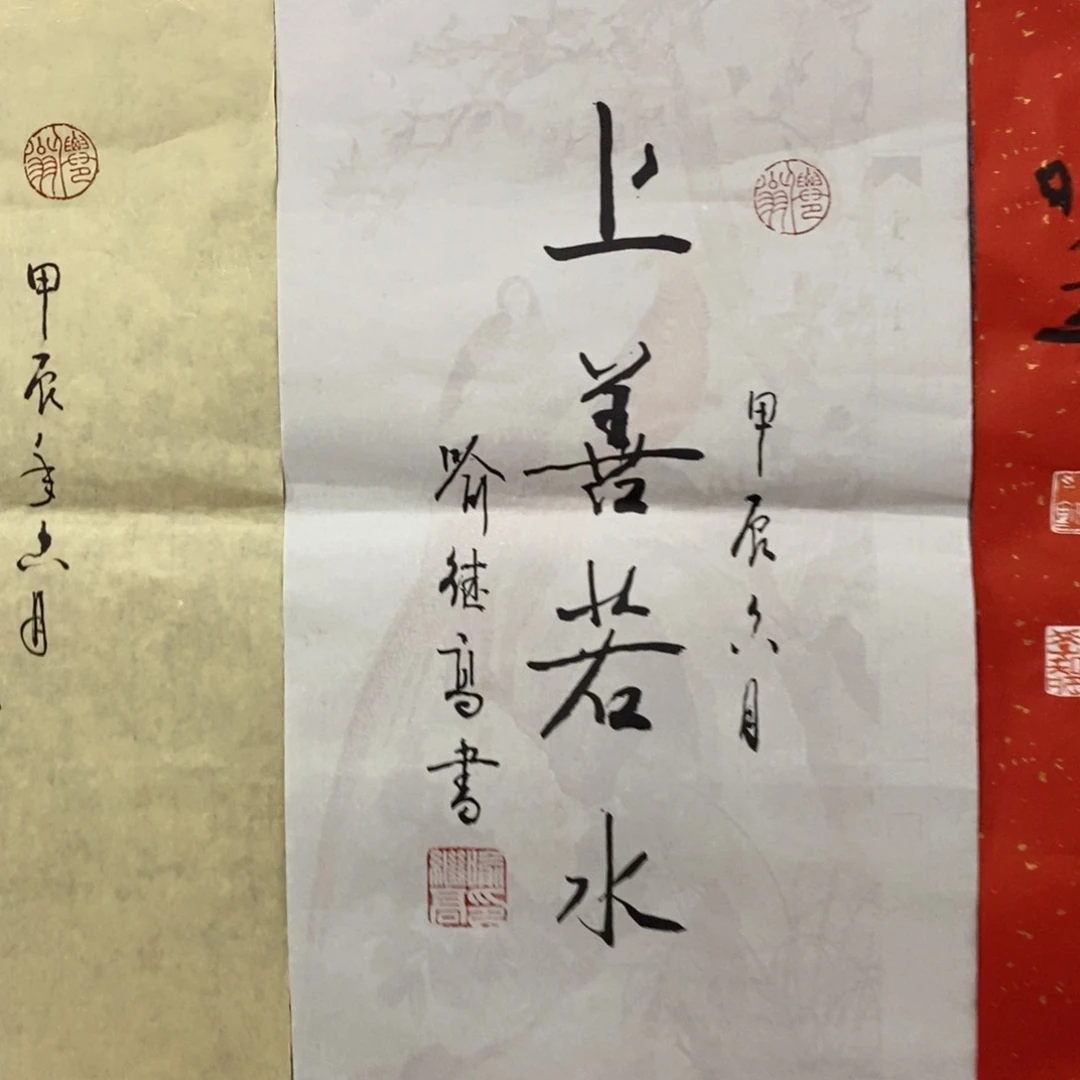 甲辰六月
上善若水
喻继高书
喻继高印
甲辰年六月